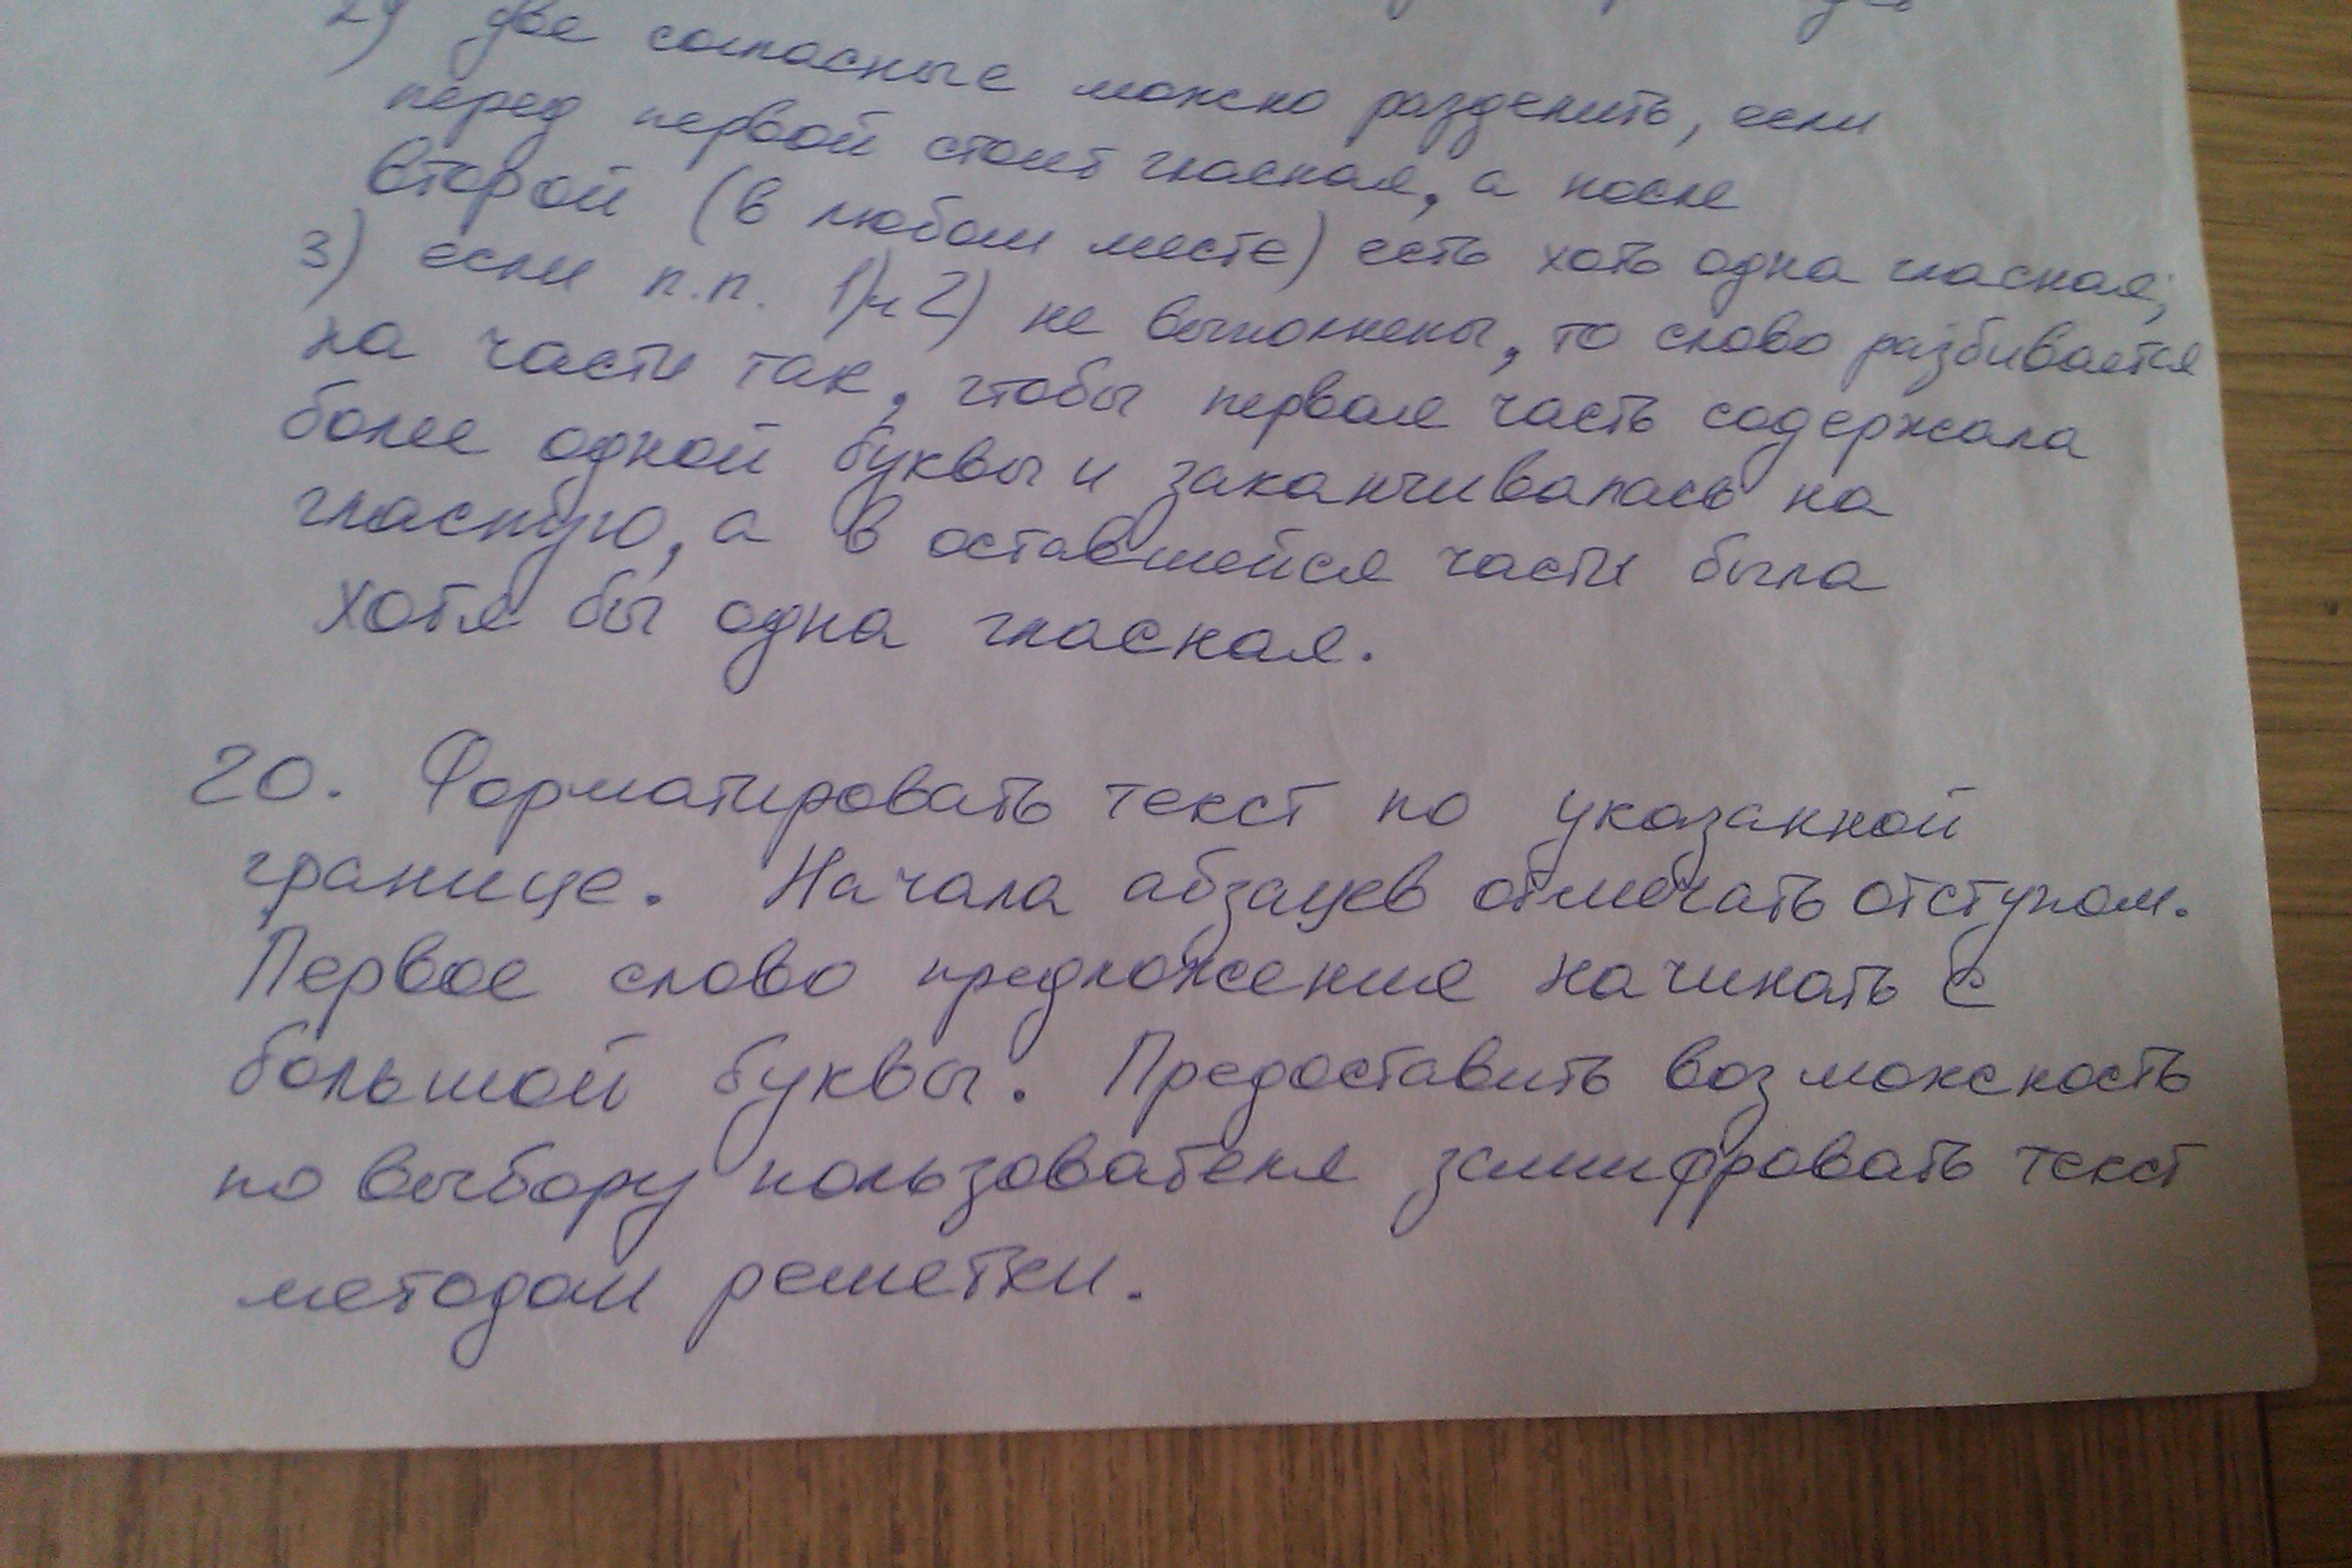 2) две согласные можно разделить, если
перед первой стоит гласная, а после
второй (в любом месте) есть хоть одна гласная;
3) если п.п. 1) и 2) не выполнены, то слово разбивается
на части так, чтобы первая часть содержала
более одной буквы и заканчивалась на
гласную, а в оставшейся части была
хотя бы одна гласная.
20. Форматировать текст по указанной
границе. Начала абзацев отмечать отступом.
Первое слово предложения начинать с
большой буквы. Предоставить возможность
по выбору пользователя зашифровать текст
методом решетки.